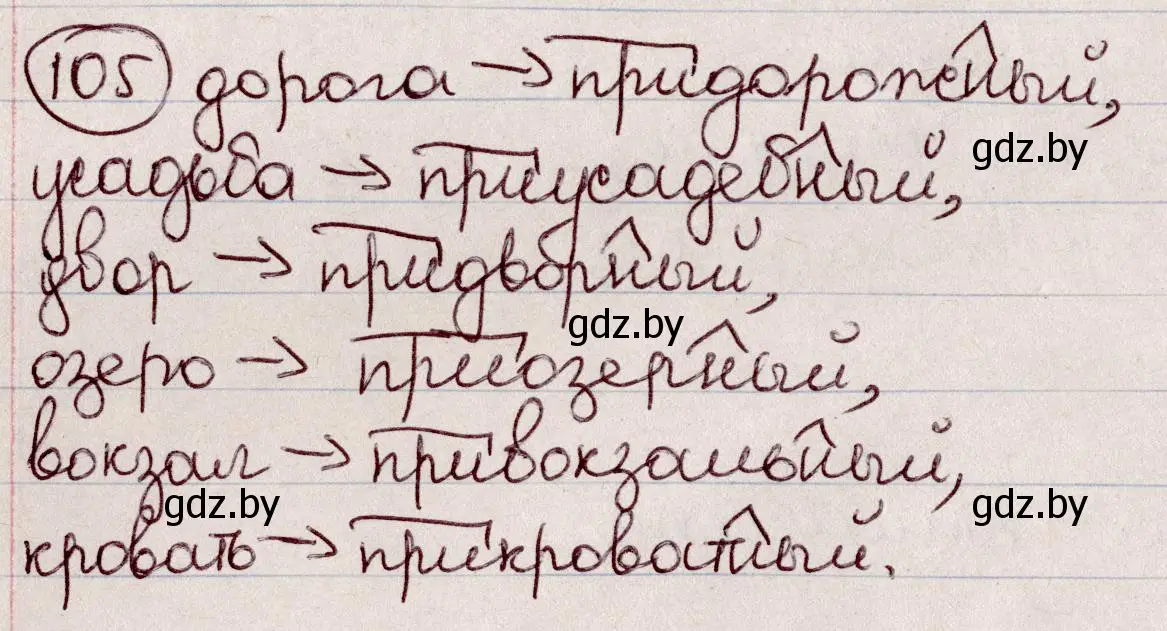 105 дорога → придорожный,
усадьба → приусадебный,
gdz.by
двор → придворный,
gdz.by
озеро → приозерный,
вокзал → привокзальный,
gdz.by gdz.by
кровать → прикроватный.